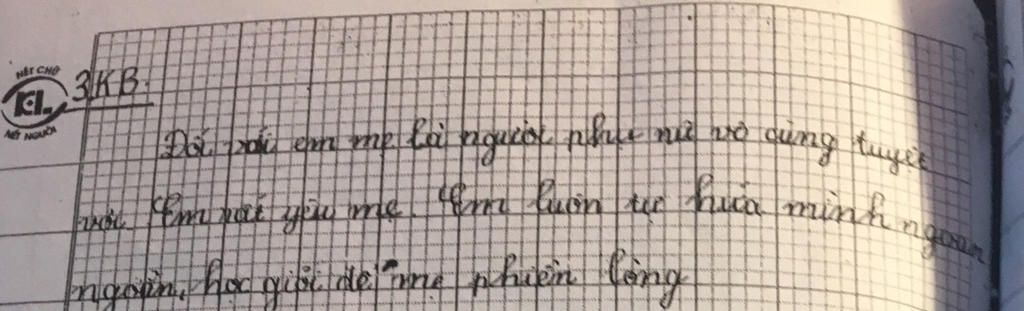 NÉT CHỮ
KL
NẾT NGƯỜI
3, KB:
Đối với em mẹ là người phụ nữ vô cùng tuyệt
vời. Em rất yêu mẹ. Em luôn tự hứa mình ngoan
ngoãn, học giỏi để mẹ phiền lòng